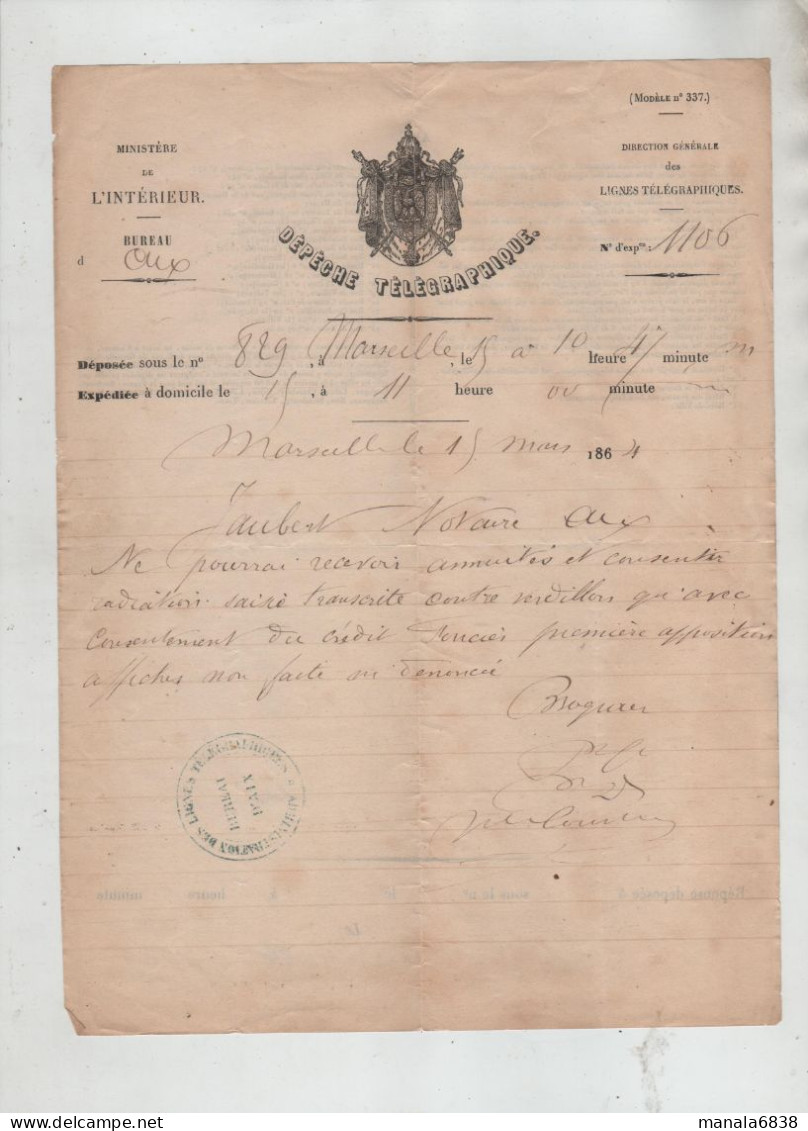 (Modèle n° 337.)
MINISTÈRE
DE
L'INTÉRIEUR.
BUREAU
d Aix
DÉPÊCHE TÉLÉGRAPHIQUE.
DIRECTION GÉNÉRALE
des
LIGNES TÉLÉGRAPHIQUES.
N° d'expon: 1106
Déposée sous le n° 829, à Marseille, le 15 à 10 heure 47 minute m
Expédiée à domicile le 15, à 11 heure 00 minute m
Marseille le 15 mars 1864
Jaubert Notaire Aix
Ne pourrai recevoir annuités et consentir
radiation saisie transcrite contre verdillon qu'avec
Consentement du crédit foncier première apposition
affiches non faite ni dénoncé
ADMINISTRATION DES LIGNES TÉLÉGRAPHIQUES
BUREAU
D'AIX
Réponse déposée à sous le n° le à heure minute
Le
manala6838